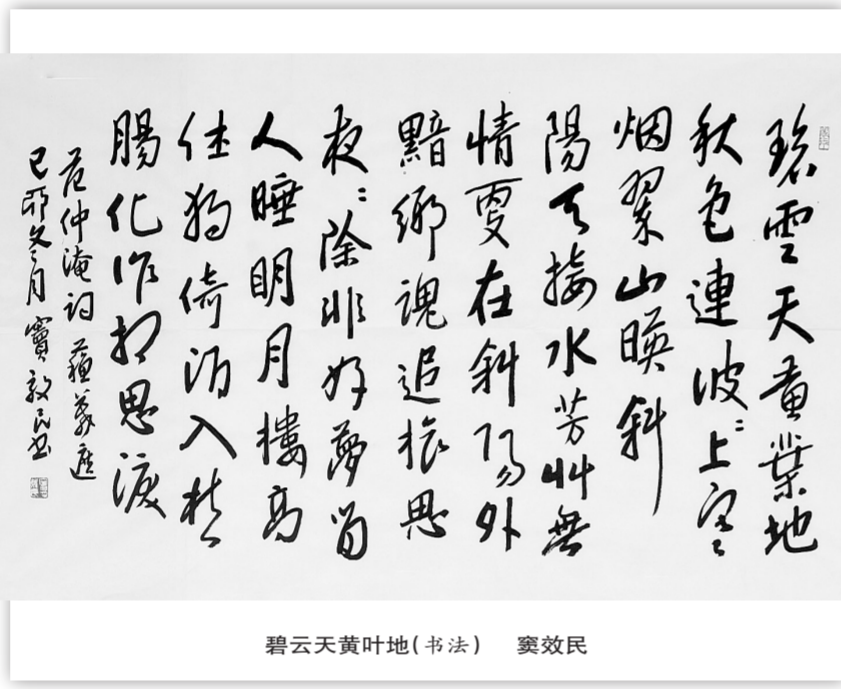 碧雲天黄葉地
秋色連波〻上寒
烟翠山暎斜
陽天接水芳艸無
情更在斜陽外
黯鄉魂追旅思
夜〻除非好夢留
人睡明月樓高
休獨倚酒入愁
腸化作相思淚
范仲淹詞 蘇幕遮
己卯冬月 竇效民書
碧云天黄叶地(书法) 窦效民